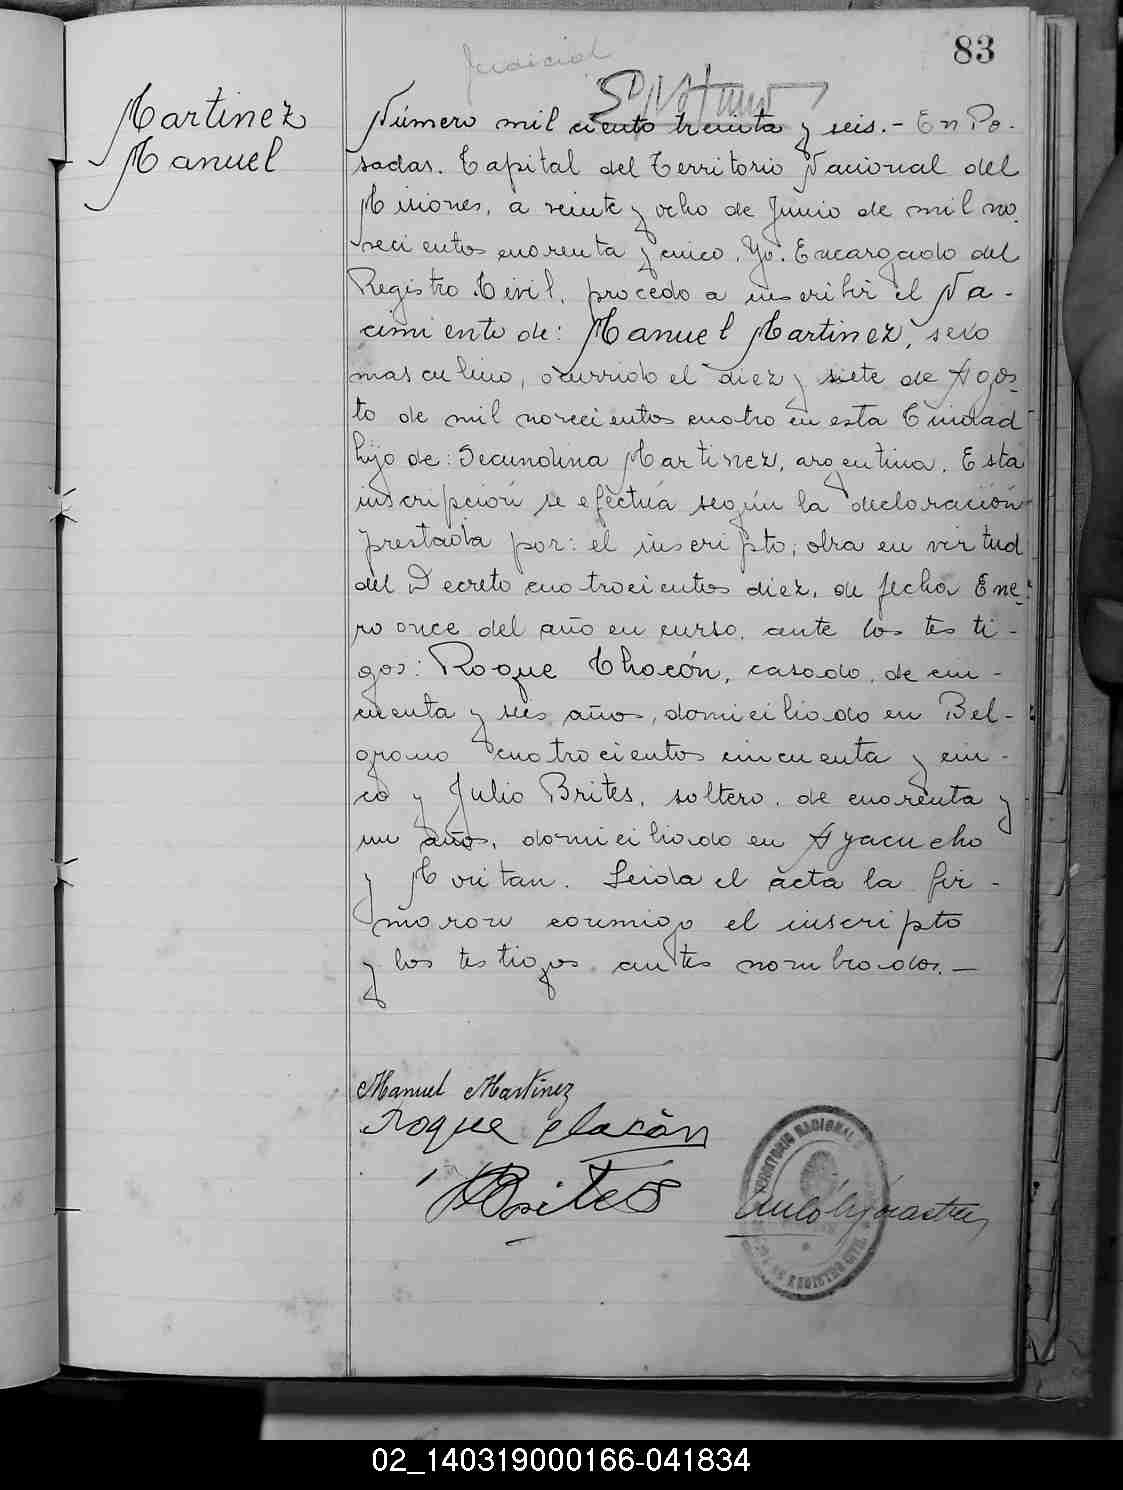 83
Judicial
Martinez
Manuel
Número mil ciento treinta y seis.- En Po-
sadas. Capital del Territorio Nacional del
Misiones, a veinte y ocho de Junio de mil no-
vecientos cuarenta y cinco, Yo. Encargado del
Registro Civil, procedo a inscribir el Na-
cimiento de: Manuel Martinez, sexo
masculino, ocurrido el diez y siete de Agos-
to de mil novecientos cuatro en esta Ciudad
hijo de: Secundina Martinez, argentina. Esta
inscripción se efectúa según la declaración
prestada por: el inscripto; obra en virtud
del Decreto cuatrocientos diez, de fecha Ene-
ro once del año en curso, ante los testi-
gos: Roque Chacón, casado, de cin-
cuenta y seis años, domiciliado en Bel-
grano cuatrocientos cincuenta y cin-
co y Julio Brites, soltero, de cuarenta y
un años, domiciliado en Ayacucho
y Moritan. Leida el acta la fir-
maron conmigo el inscripto
y los testigos antes nombrados.—
Manuel Martinez
Roque Chacón
Brites
TERRITORIO NACIONAL
REGISTRO CIVIL
02_140319000166-041834